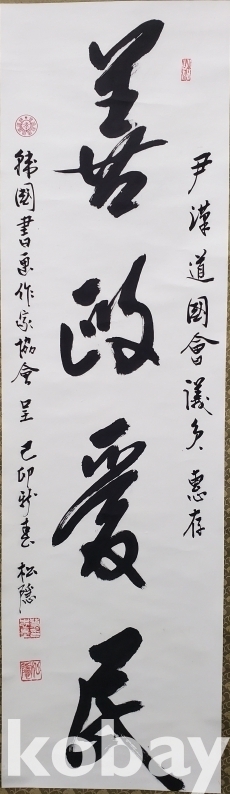 尹漢道國會議員 惠存
善政愛民
韓國書畫作家協會 呈 己卯新春 松隱
kobay